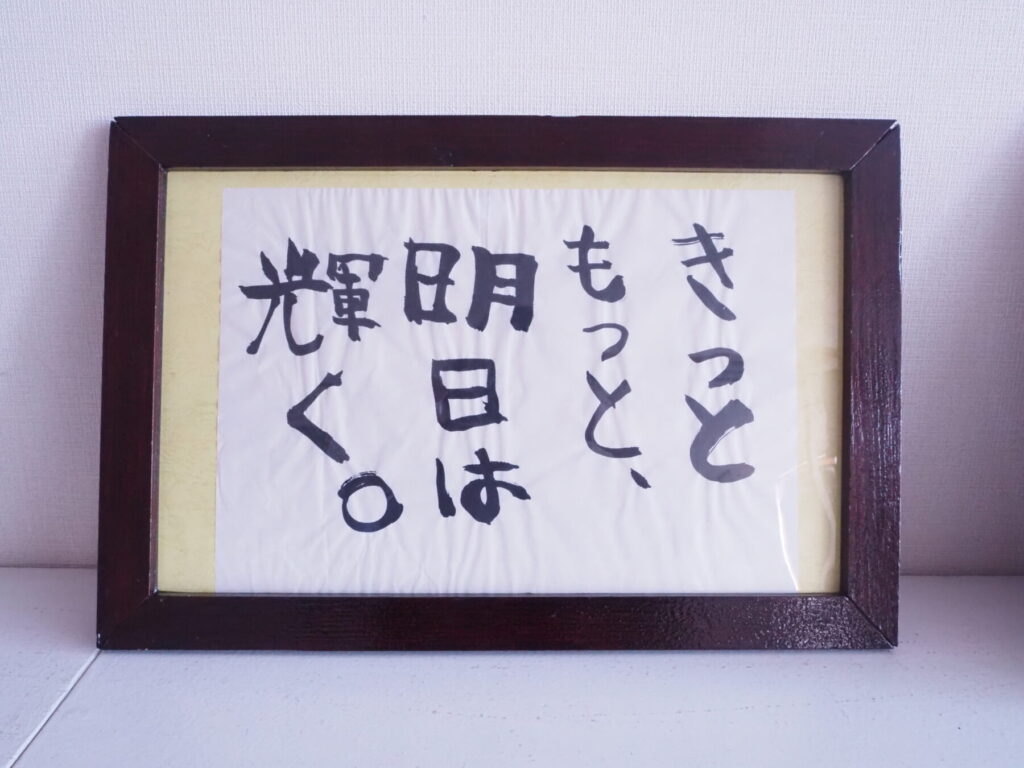 きっと
もっと、
明日は
輝く。